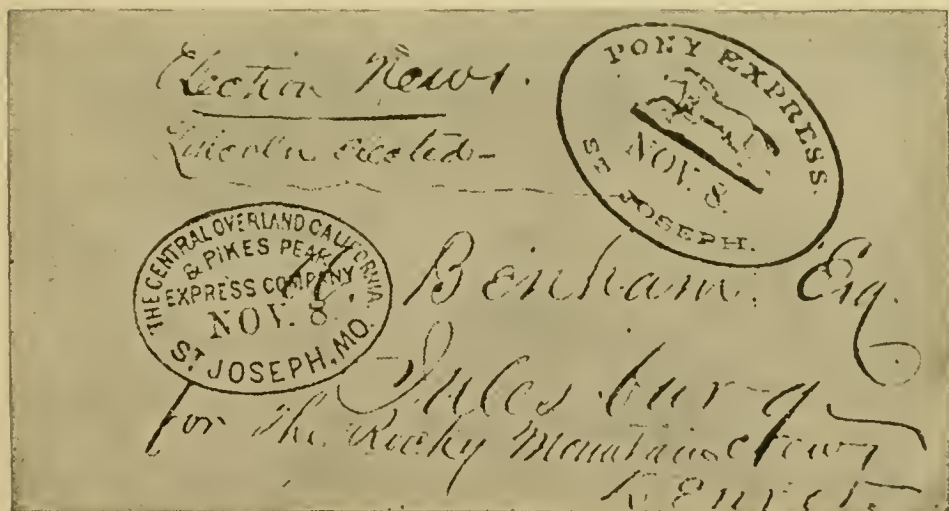 Election News.
Lincoln elected
PONY EXPRESS.
NOV. 8.
ST JOSEPH.
THE CENTRAL OVERLAND CALIFORNIA
& PIKES PEAK
EXPRESS COMPANY
NOV. 8.
ST JOSEPH, MO.
Benham, Esq.
Julesburg
for the Rocky Mountain News
Denver.